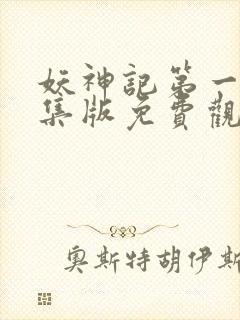 妖神記第一
集版免費觀
奧斯特胡伊斯